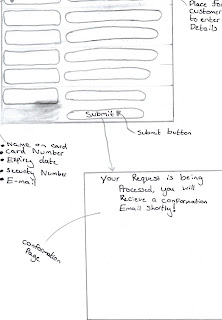 Place for
customer
to enter
Details
Submit
Submit button
• Name on card
• Card Number
• Expiry date
• Security Number
• E-mail
Your Request is being
Processed, you will
Recieve a conformation
Email Shortly!
conformation
Page